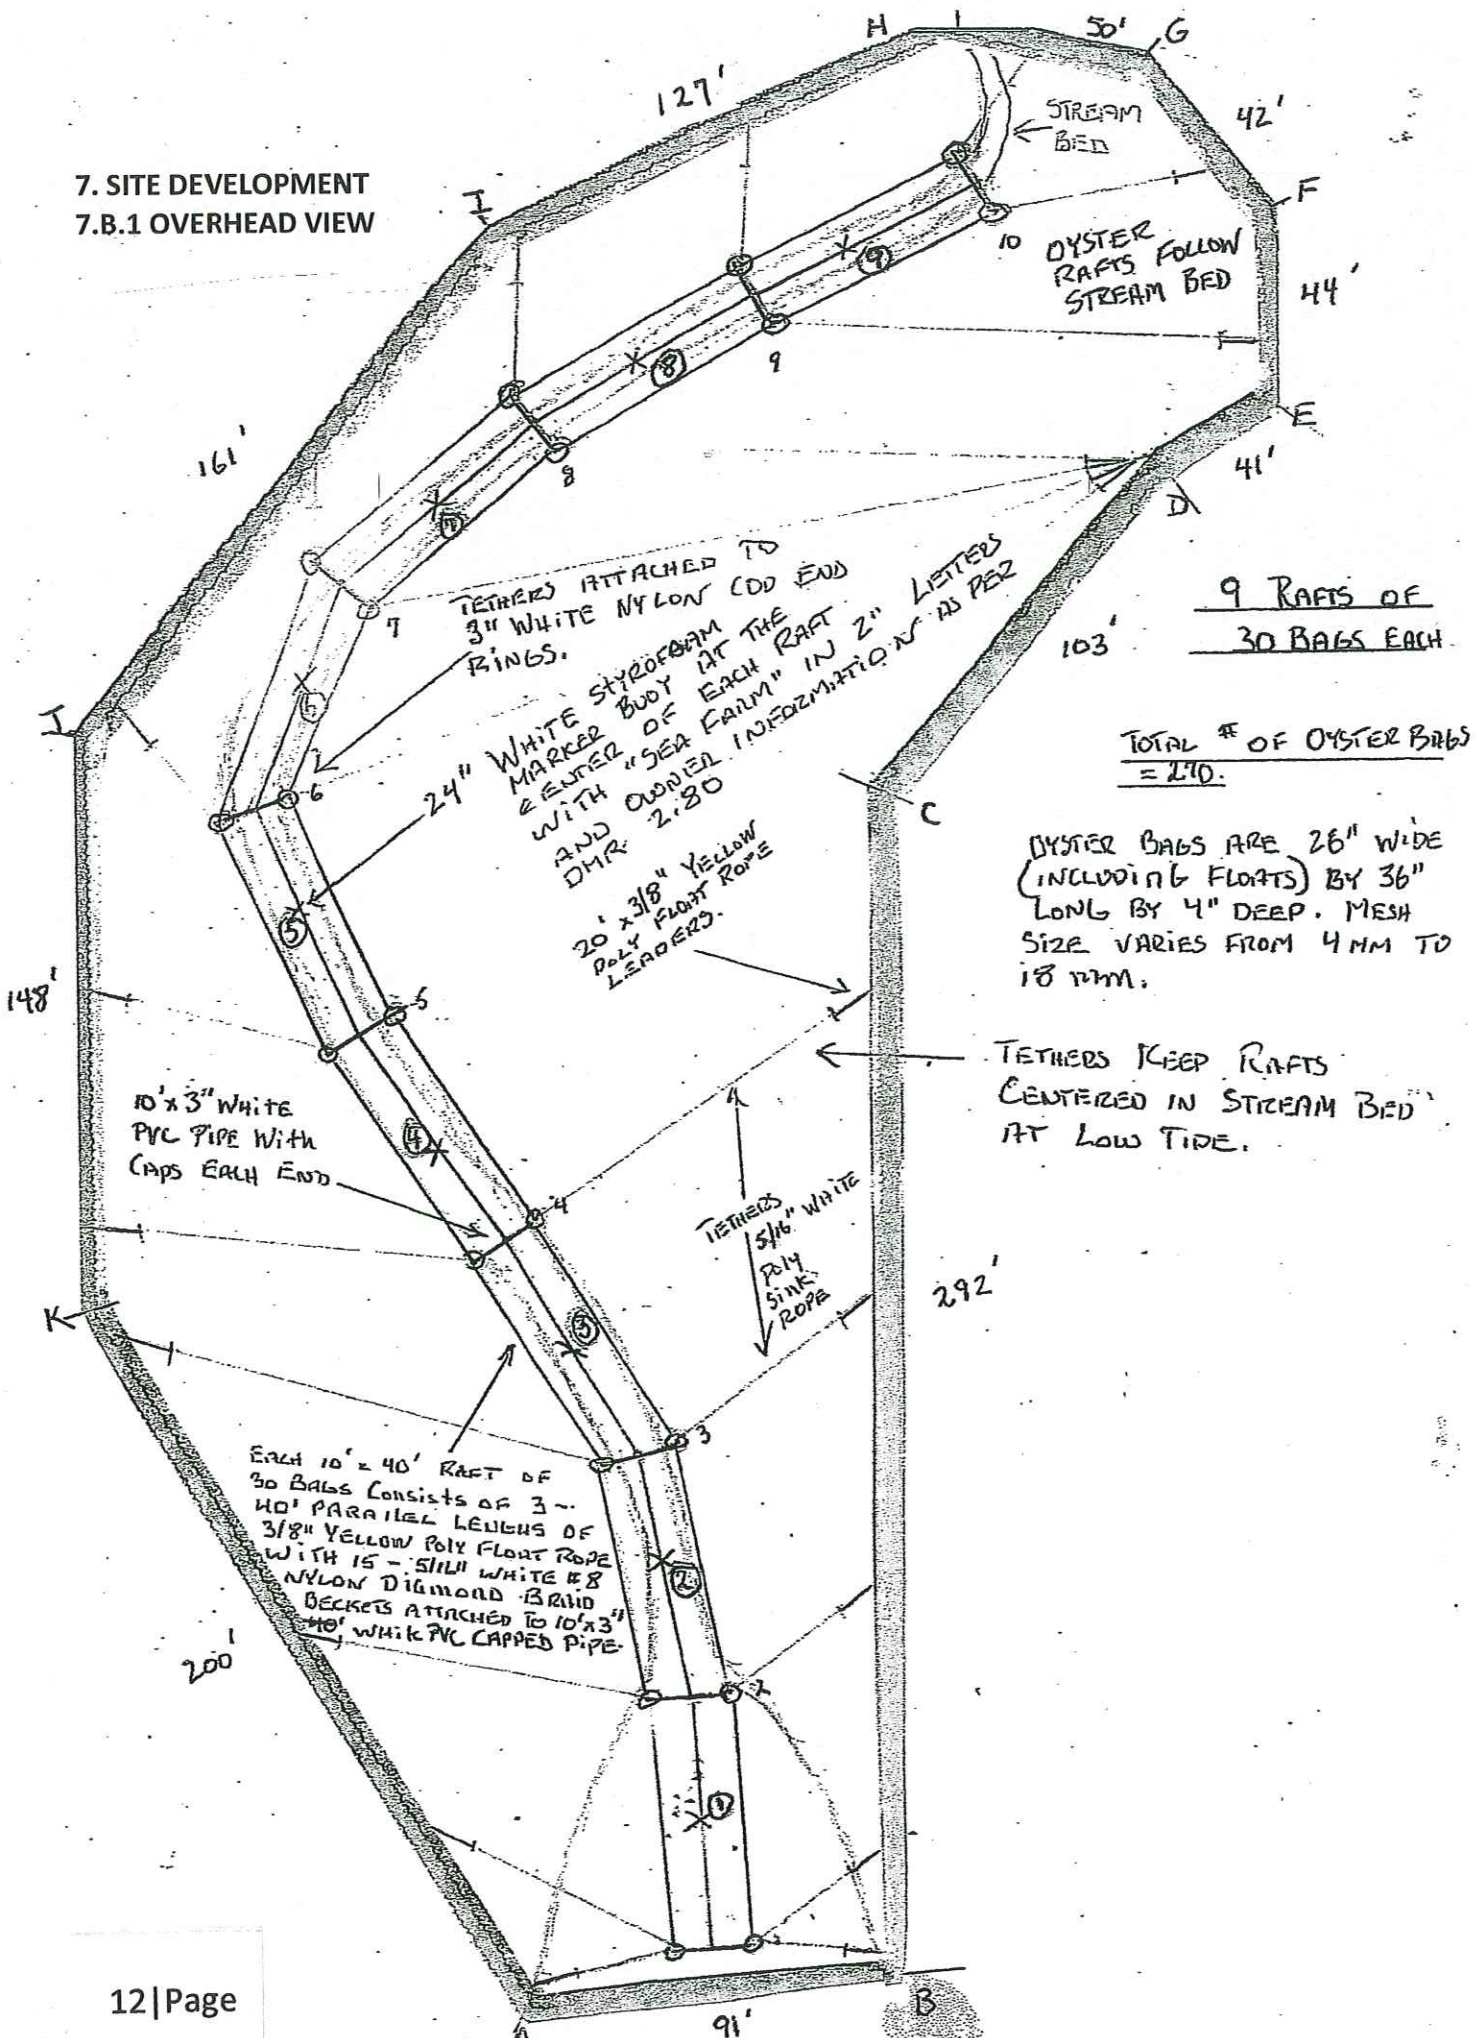 7. SITE DEVELOPMENT
7.B.1 OVERHEAD VIEW
H
50'
G
127'
42'
STREAM
BED
I
F
10
OYSTER
RAFTS FOLLOW
STREAM BED
44'
9
8
9
E
161'
8
41'
D
7
7
TETHERS ATTACHED TO
3" WHITE NYLON COD END
RINGS.
24" WHITE STYROFOAM
MARKER BUOY AT THE
CENTER OF EACH RAFT
WITH "SEA FARM" IN 2" LETTERS
AND OWNER INFORMATION AS PER
DMR 2.80
9 RAFTS OF
30 BAGS EACH
103'
TOTAL # OF OYSTER BAGS
= 270.
J
6
6
C
20' x 3/8" YELLOW
POLY FLOAT ROPE
LEADERS.
OYSTER BAGS ARE 26" WIDE
(INCLUDING FLOATS) BY 36"
LONG BY 4" DEEP. MESH
SIZE VARIES FROM 4 MM TO
18 MM.
5
148'
5
TETHERS KEEP RAFTS
CENTERED IN STREAM BED
AT LOW TIDE.
10' x 3" WHITE
PVC PIPE WITH
CAPS EACH END
4
4
TETHERS
5/16" WHITE
POLY
SINK
ROPE
292'
K
3
3
EACH 10' x 40' RAFT OF
30 BAGS CONSISTS OF 3 -
40' PARALLEL LENGHS OF
3/8" YELLOW POLY FLOAT ROPE
WITH 15 - WHITE #8
NYLON DIAMOND BRAID
BECKETS ATTACHED TO 10' x 3"
WHITE PVC CAPPED PIPE.
2
200'
2
1
12|Page
A
91'
B